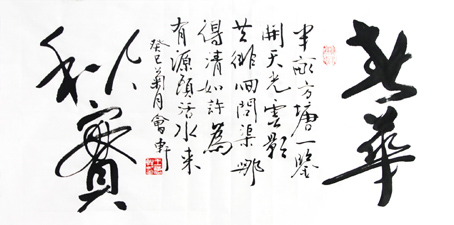 春華
半畝方塘一鑒
開天光雲影
共徘徊問渠那
得清如許為
有源頭活水來
癸巳菊月會軒
秋實